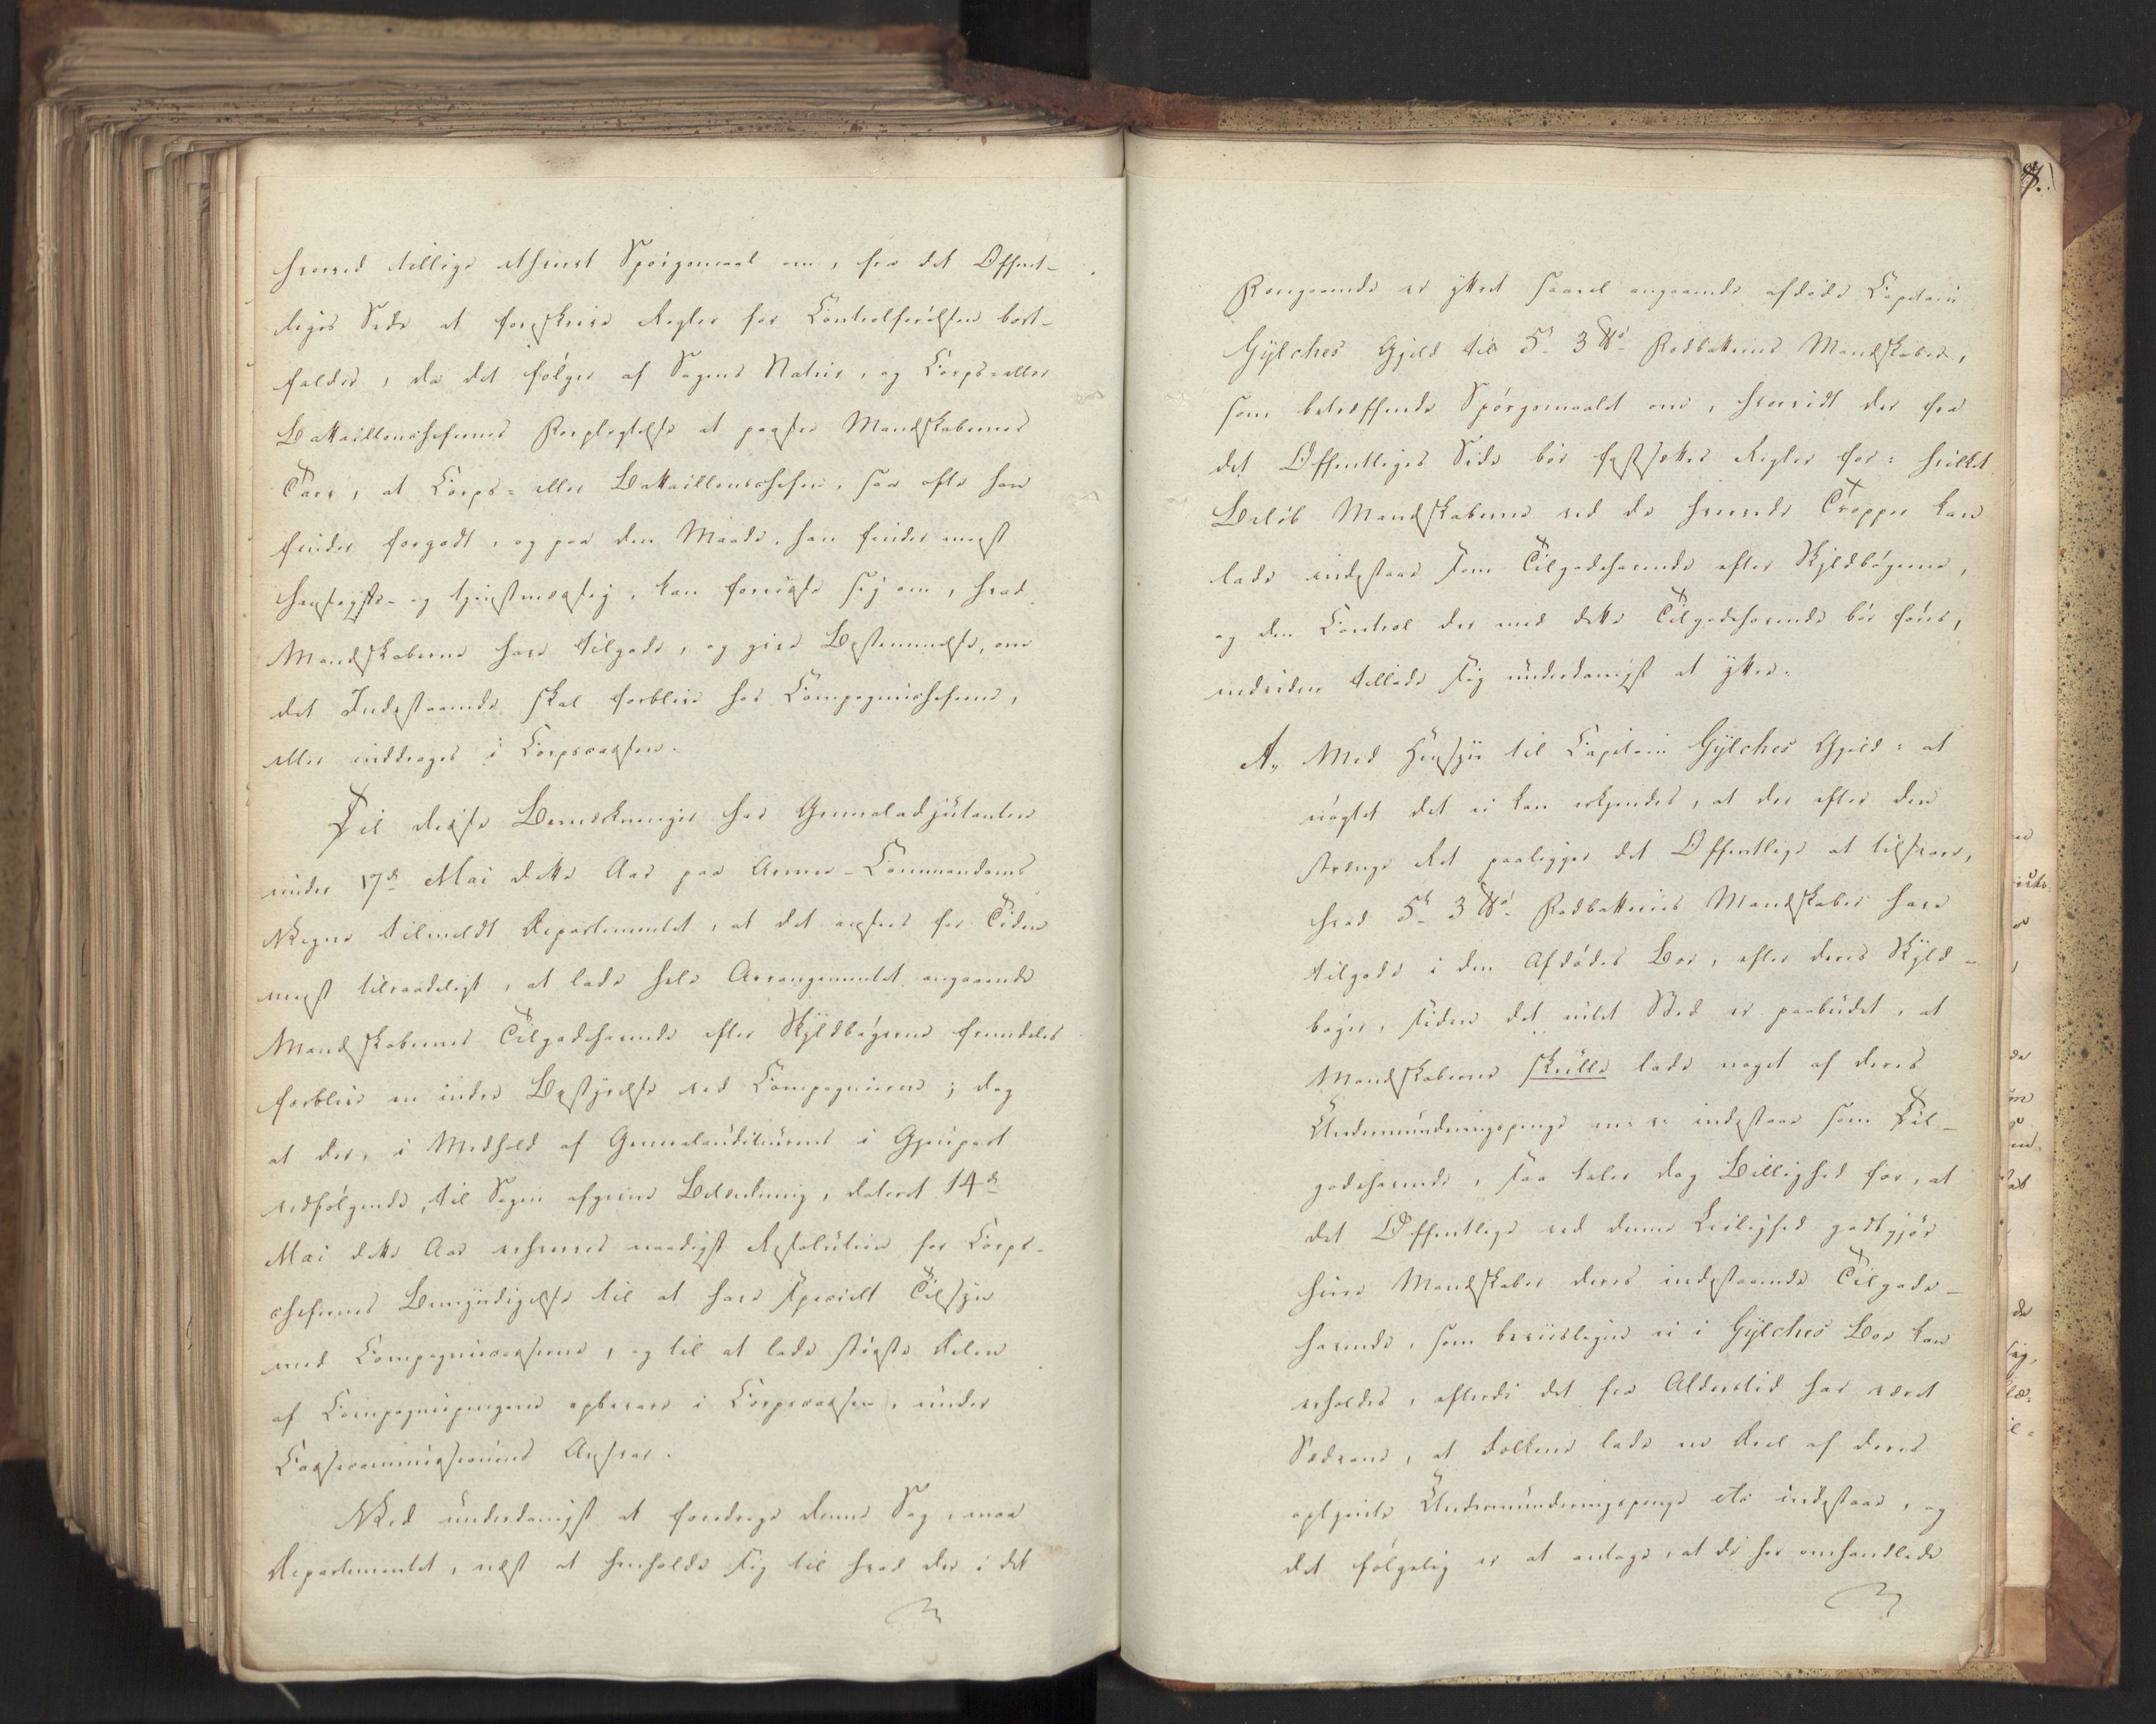 hvorved tillige ethvert Spörgsmaal om, fra det Offent-
liges Side at foreskrive Regler for Controlförelsen bort-
falder, da det fölger af Sagens Natur, og Corps- eller
Battaillonschefernes Forpligtelse at paasee Mandskabernes
Tarv, at Corps- eller Battaillonschefen, saa ofte han
finder forgodt, og paa den Maade, han finder meest
hensigts- og tjenstmæssig, kan forvisse sig om, hvad
Mandskaberne have tilgode, og give Bestemmelse, om
det Indestaaende skal forblive hos Compagniecheferne,
eller inddrages i Corpscassen.
Til disse Bemærkninger har Generaladjutanten
under 17de Mai dette Aar paa Armee-Commandoens
Vegne tilmeldt Departementet, at det ansees for Tiden
meest tilraadeligt, at lade hele Arrangementet angaaende
Mandskabernes Tilgodehavende efter Skyldbögerne fremdeles
forblive en indre Bestyrelse ved Compagnierne; dog
at der, i Medhold af Generalauditeurens i Gjenpart
vedfölgende, til Sagen afgivne Betænkning, dateret 14de
Mai dette Aar erhverves naadigst Resolution for Corps-
chefernes Bemyndigelse til at have specielt Tilsyn
med Compagniecasserne, og til at lade störste Delen
af Compagniepengene opbevare i Corpscassen, under
Cassecommissionens Ansvar.
Ved underdanigst at foredrage denne Sag, maa
Departementet, næst at henholde sig til hvad der i det
Foregaaende er yttret saavel angaaende afdöde Capitain
Gylches Gjeld til 5t 3 ℔s Fodbatteries Mandskaber,
som betræffende Spörgsmaalet om, hvorvidt der fra
det Offentliges Side bör fastsættes Regler for: hvilket
Belöb Mandskaberne ved de hvervede Tropper kan
lade indestaae som Tilgodehavende efter Skyldbögerne,
og den Control der med dette Tilgodehavende bör föres,
endvidere tillade sig underdanigst at yttre:
A, Med Hensyn til Capitain Gylches Gjeld: at
uagtet det ei kan erkjendes, at der efter den
strænge Ret paaligger det Offentlige at tilsvare,
hvad 5t 3 ℔s Fodbatteries Mandskaber have
tilgode i den Afdödes Boe, efter deres Skyld-
böger, siden det intet Sted er paabudet, at
Mandskaberne skulle lade noget af deres
Undermunderingspenge m: v: indestaae som Til-
godehavende, saa taler dog Billighed for, at
det Offentlige ved denne Leilighed godtgjör
hine Mandskaber deres indestaaende Tilgode-
havende, som bevisligen ei i Gylches Boe kan
erholdes, efterdi det fra Alderstid har været
Sædvane, at Folkene lade en Deel af deres
optjente Undermunderingspenge etc indestaae, og
det fölgelig er at antage, at de her omhandlede